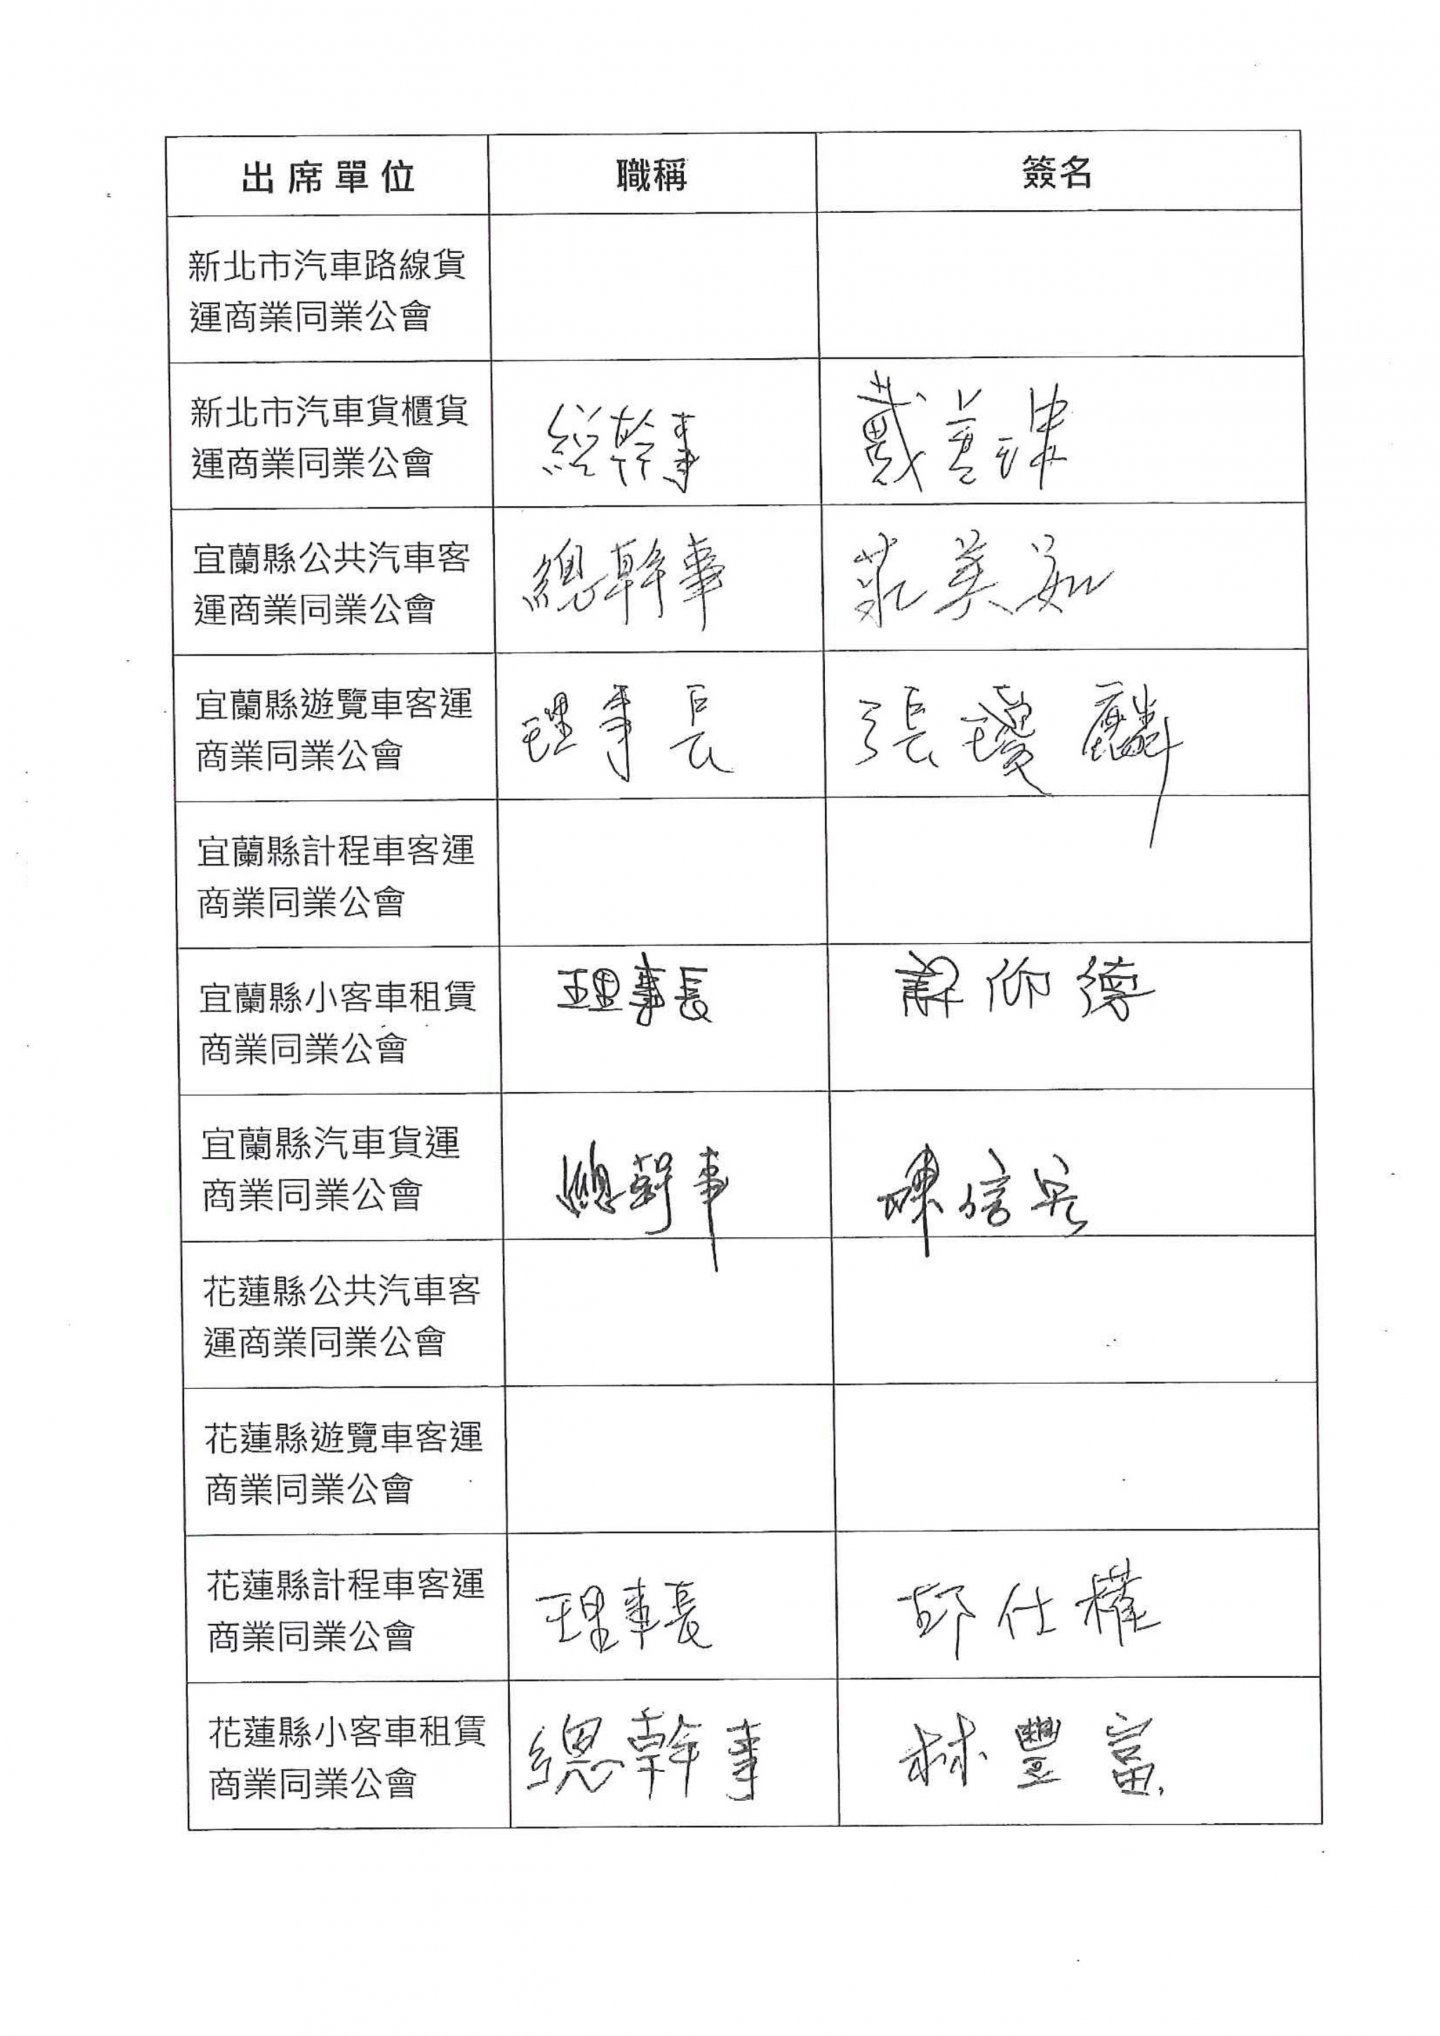 出席單位 職稱 簽名
新北市汽車路線貨
運商業同業公會
新北市汽車貨櫃貨
運商業同業公會
總幹事 戴
宜蘭縣公共汽車客
運商業同業公會
總幹事 莊美
宜蘭縣遊覽車客運
商業同業公會
理事長 張瓊麟
宜蘭縣計程車客運
商業同業公會
宜蘭縣小客車租賃
商業同業公會
理事長 仰德
宜蘭縣汽車貨運
商業同業公會
總幹事 陳信宏
花蓮縣公共汽車客
運商業同業公會
花蓮縣遊覽車客運
商業同業公會
花蓮縣計程車客運
商業同業公會
理事長 邱仕權
花蓮縣小客車租賃
商業同業公會
總幹事 林豐富